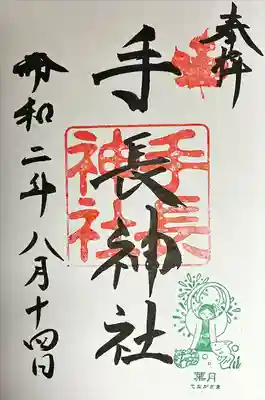 奉拝
手長神社
手長
神社
令和二年八月十四日
葉月
てながさま